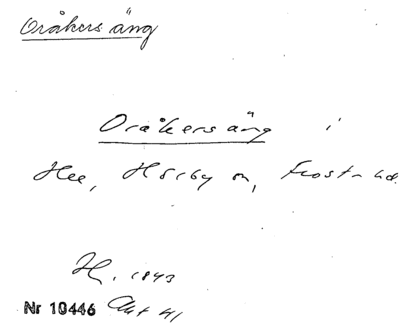 Oråkersäng
Oråkersäng i
Hee, Hörby sn, Frosta hd.
H. 1843
Nr 10446 Akt 41